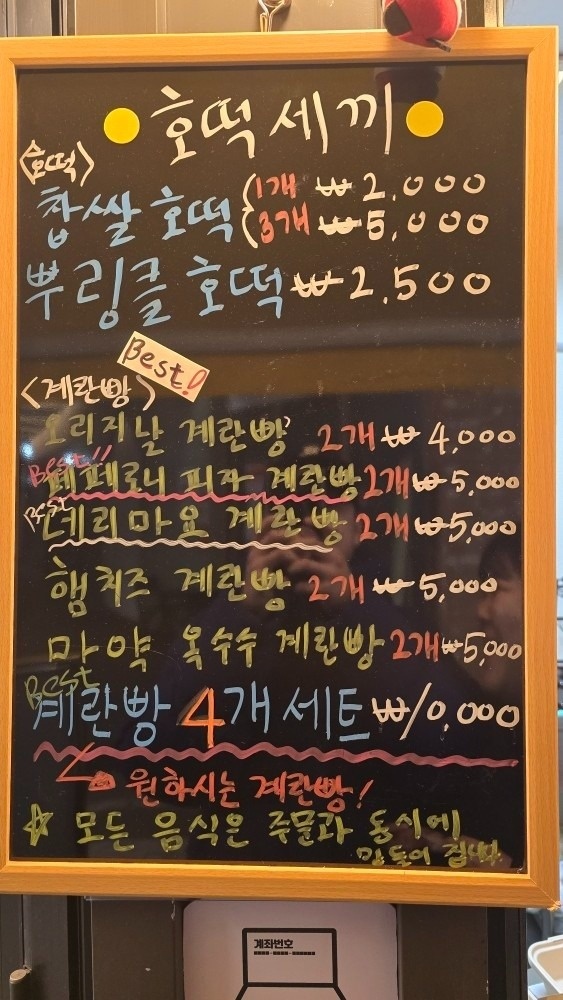 호떡세끼
<호떡>
찹쌀 호떡 1개 ₩ 2,000
3개 ₩ 5,000
뿌링클 호떡 ₩ 2,500
Best!
<계란빵>
오리지날 계란빵 2개 ₩ 4,000
Best!!
페페로니 피자 계란빵 2개 ₩ 5,000
Best
데리마요 계란빵 2개 ₩ 5,000
햄치즈 계란빵 2개 ₩ 5,000
마약 옥수수 계란빵 2개 ₩ 5,000
Best
계란빵 4개 세트 ₩10,000
원하시는 계란빵!
☆ 모든 음식은 주문과 동시에
만들어 집니다.
계좌번호